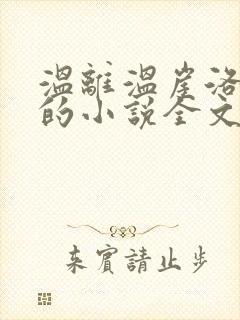 温離温崖洛
的小說全文
来賓請止步